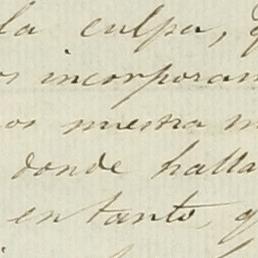 la culpa,
os incorporam
os nuestra m
donde halla
en tanto, q